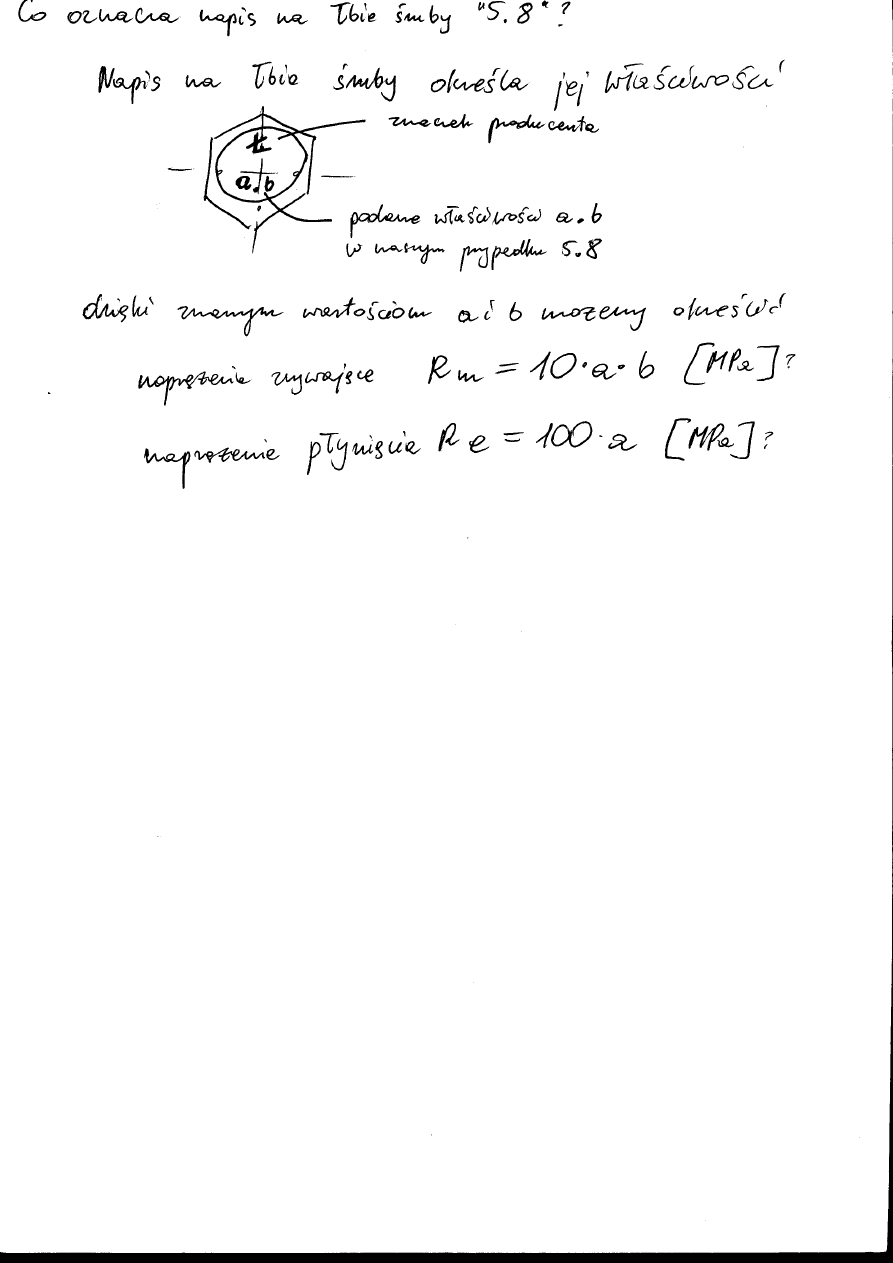 Co oznacza napis na łbie śruby "5.8"?
Napis na łbie śruby określa jej właściwości
znaczek producenta
Ł
a.b
podane właściwości a.b
w naszym przypadku 5.8
dzięki znanym wartościom a i b możemy określić
naprężenie zrywające Rm = 10·a·b [MPa]?
naprężenie płynięcia Re = 100·a [MPa]?